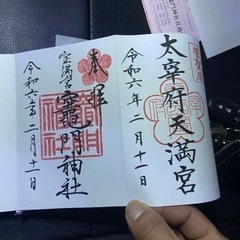 太宰府天満宮
令和六年二月十一日
奉拝
宝満宮
竈門神社
令和六年二月十一日